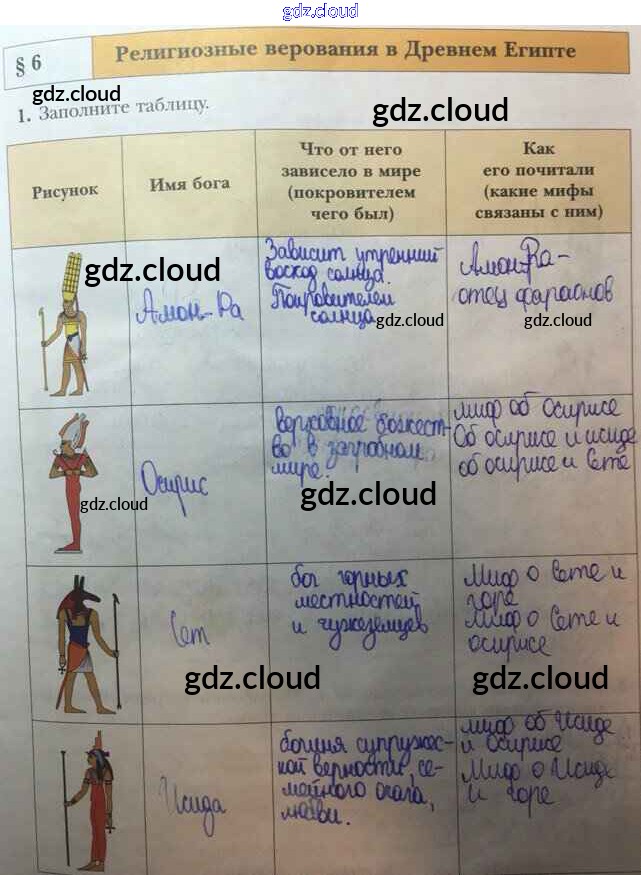 gdz.cloud
§ 6
Религиозные верования в Древнем Египте
gdz.cloud
1. Заполните таблицу.
gdz.cloud
Рисунок
Имя бога
Что от него
зависело в мире
(покровителем
чего был)
Как
его почитали
(какие мифы
связаны с ним)
gdz.cloud
Амон-Ра
Зависит утренний
восход солнца.
Покровителем
солнца
gdz.cloud
Амон-Ра -
отец фараонов
gdz.cloud
Осирис
gdz.cloud
верховное божест-
во в загробном
мире.
gdz.cloud
миф об Осирисе
Об осирисе и исиде
об осирисе и Сете
Сет
бог горных
местностей
и чужеземцев
gdz.cloud
Миф о Сете и
горе
Миф о Сете и
осирисе
gdz.cloud
Исида
богиня супружес-
кой верности, се-
мейного очага,
любви.
миф об Исиде
и Осирисе
Миф о Исиде
и горе